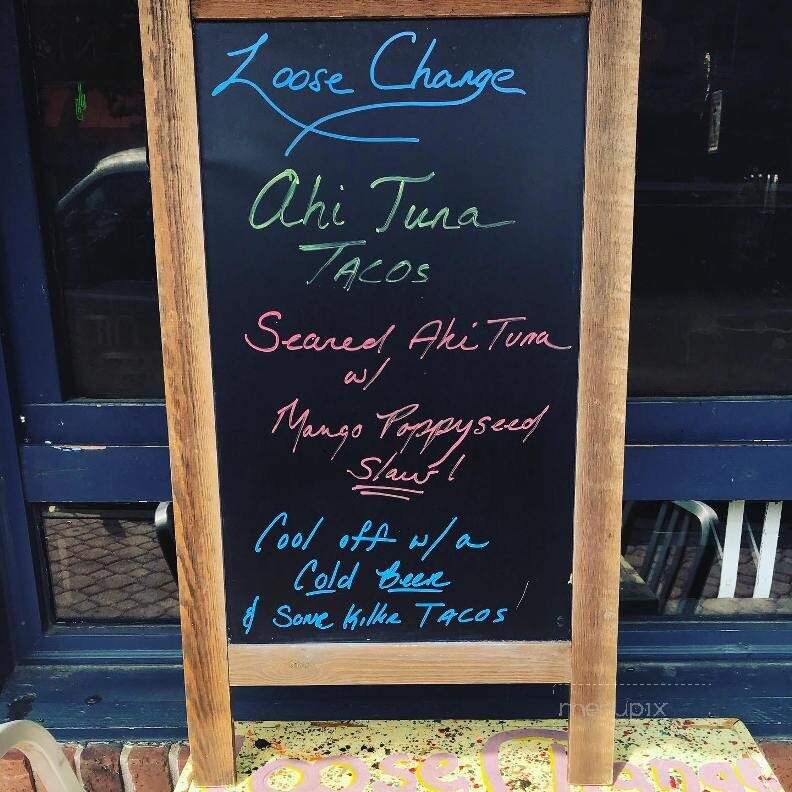 Loose Change
Ahi Tuna
TACOS
Seared Ahi Tuna
w/
Mango Poppyseed
Slaw!
Cool off w/ a
Cold Beer
& Some Killer TACOS
menupix
Loose Change